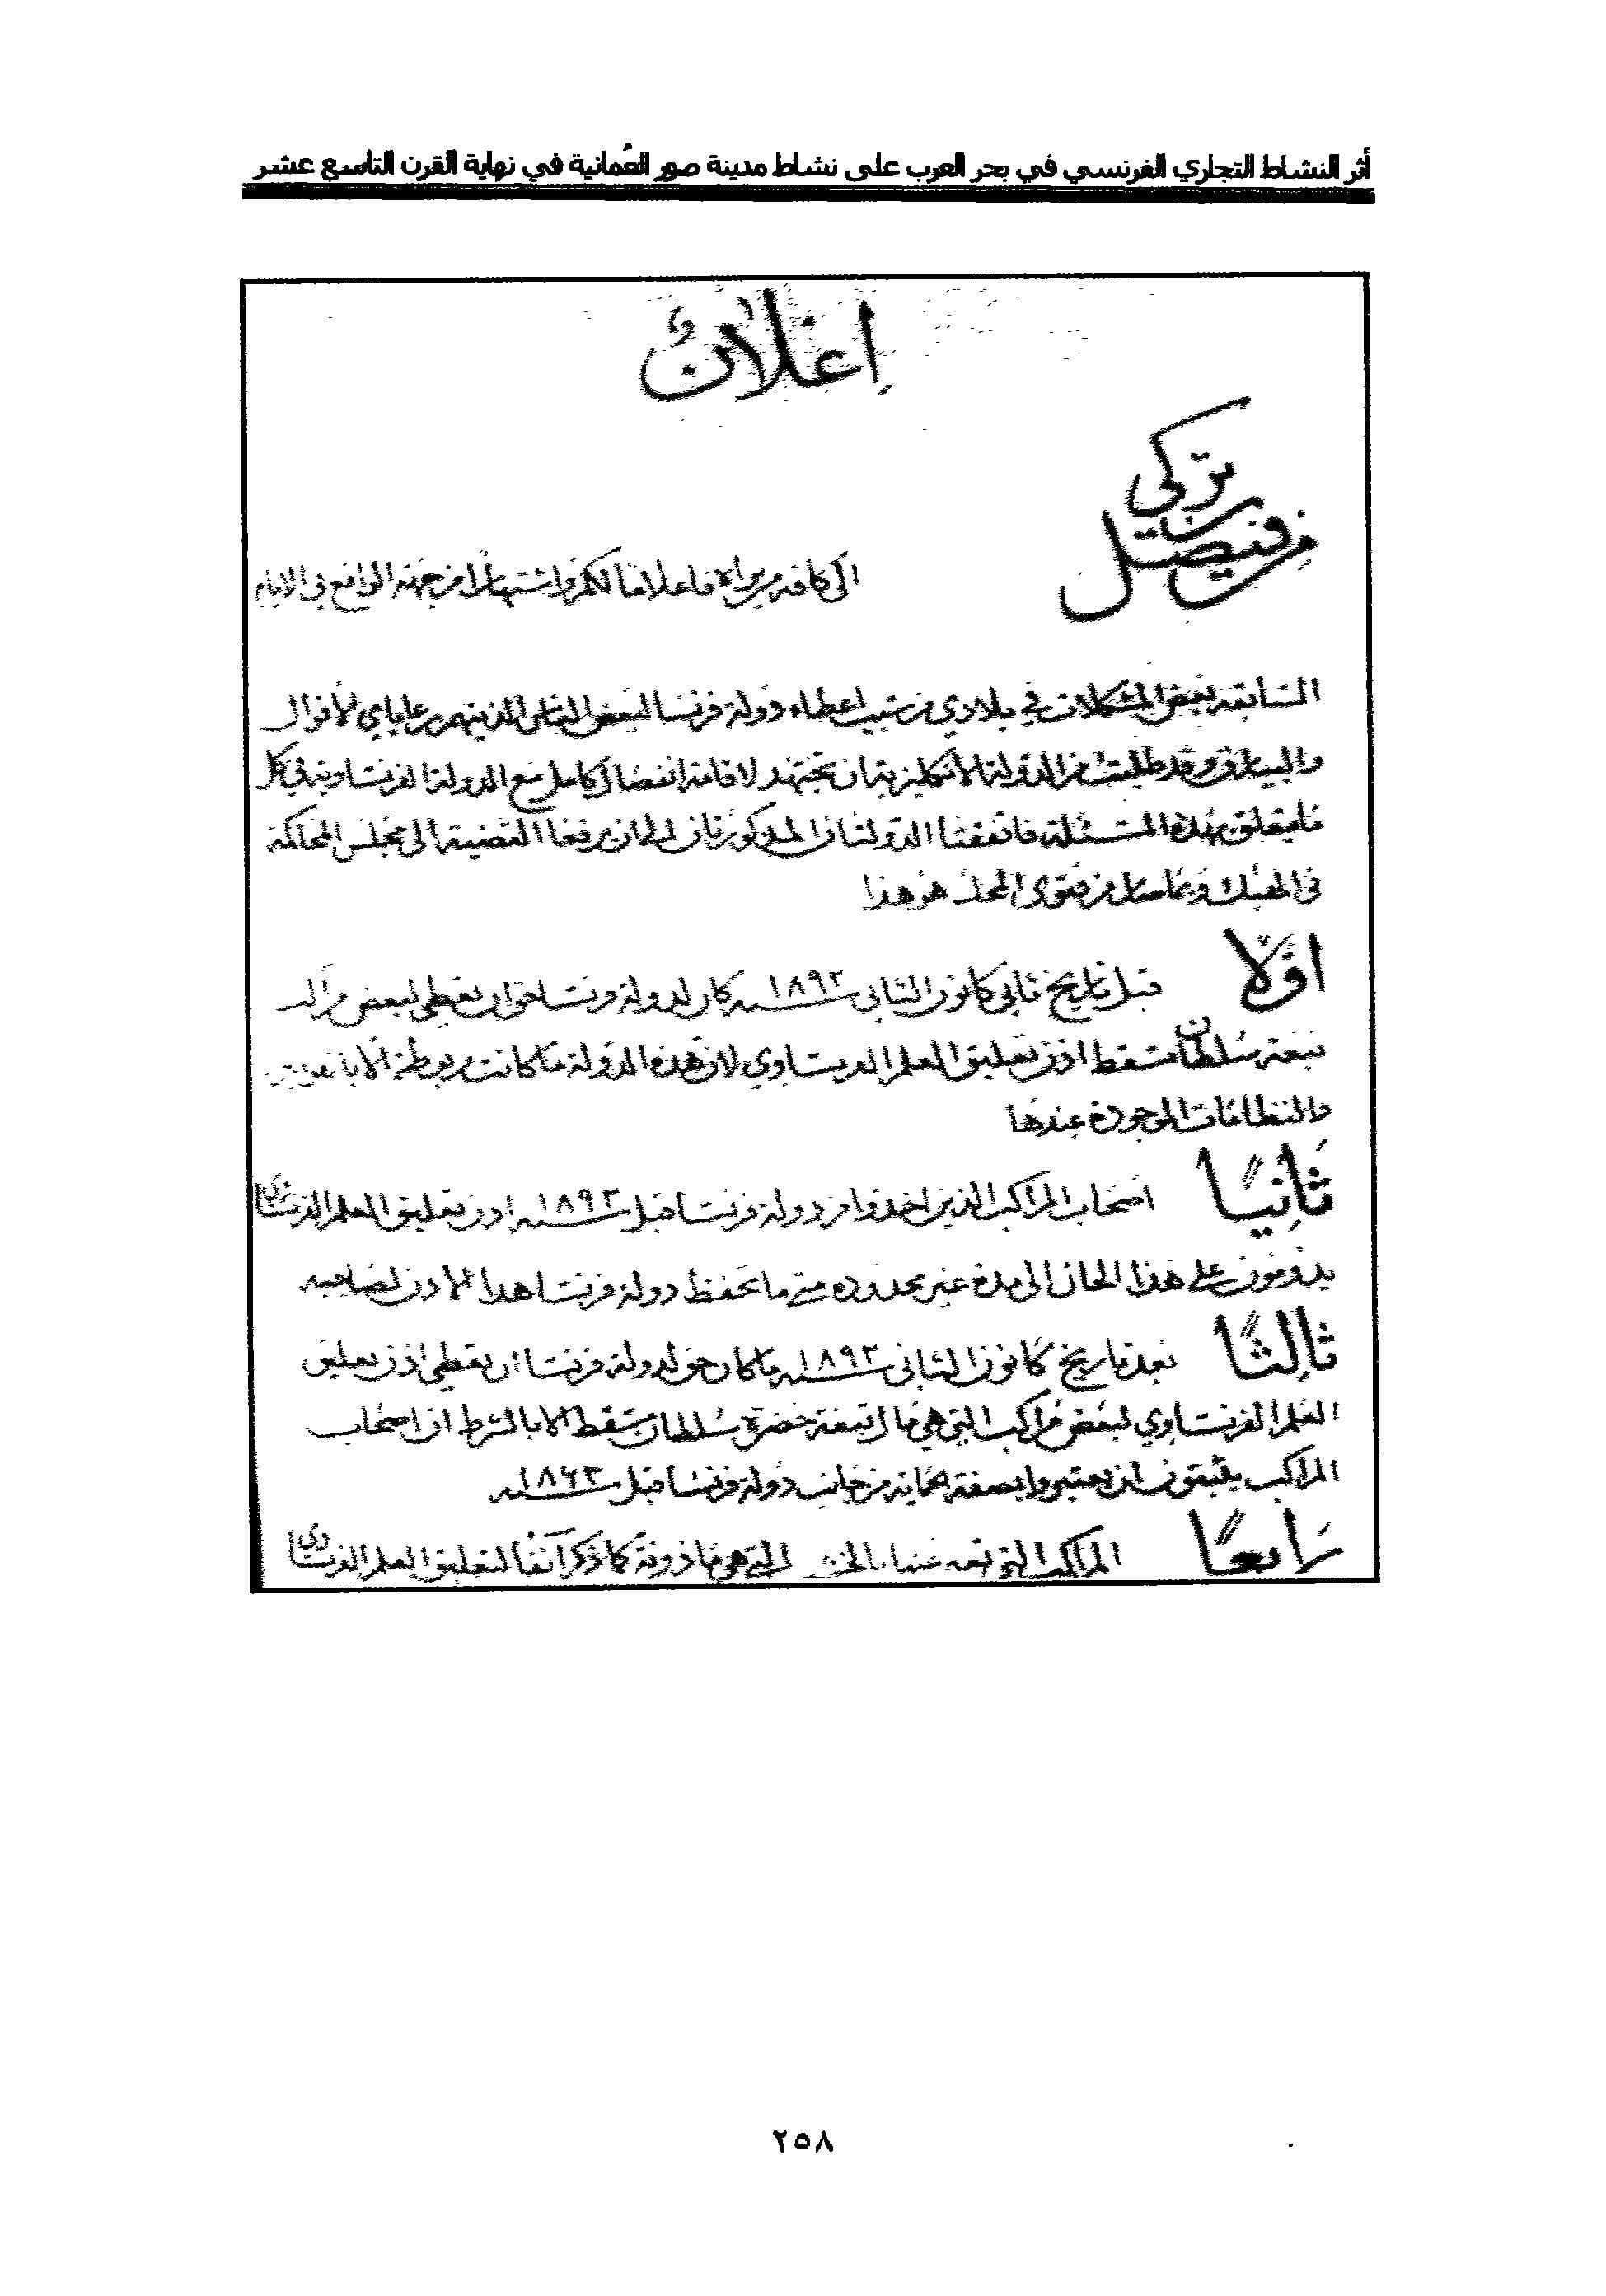 أثر النشاط التجاري الفرنسي في بحر العرب على نشاط مدينة صور العُمانية في نهاية القرن التاسع عشر
اعلان
من فيصل بن تركي
الى كافة من يراه فاعلاما لكم واشتهارا من جهة الواقع في الايام
السابقة بعض المشكلات في بلادي من سبب اعطاء دولة فرنسا لبعض الناس الذينهم من رعاياي الأقوال
والبيارق وقد طلبت من الدولة الأنكليزية ان تجتهد لاقامة انفصال كامل مع الدولة الفرنساوية في كل
ما يتعلق بهذه المسئلة فاتفقتا الدولتان المذكورتان الى ان يرفعا القضية الى مجلس المحاكمة
في الهيك وما من فتوى هو هذا
اولا قبل تاريخ ثاني كانون الثاني سنه ١٨٩٢ كان لدولة فرنسا حق ان تعطي لبعض مراكب
تبعة سلطان مسقط اذن تعليق العلم الفرنساوي لان هذه الدولة ما كانت مربوطة الا
والنظامات الموجودة عندها
ثانيًا اصحاب المراكب الذين اخذوا من دولة فرنسا قبل سنه ١٨٩٢ اذن تعليق العلم الفرنساوي
يدومون على هذا الحال الى مدة غير محدوده متى ما تحفظ دولة فرنسا هذا الاذن لصاحبه
ثالثًا بعد تاريخ كانون الثاني سنه ١٨٩٢ ما كان حق لدولة فرنسا ان تعطي اذن تعليق
العلم الفرنساوي لبعض مراكب التي هي مال تبعة حضرة سلطان مسقط الا بالشرط ان اصحاب
المراكب يثبتون ان يعتبروا بصفة حماية من جانب دولة فرنسا قبل سنه ١٨٦٣
رابعًا المراكب التي هي ماذونة كما ذكر آنفا لتعليق العلم الفرنساوي
٢٥٨